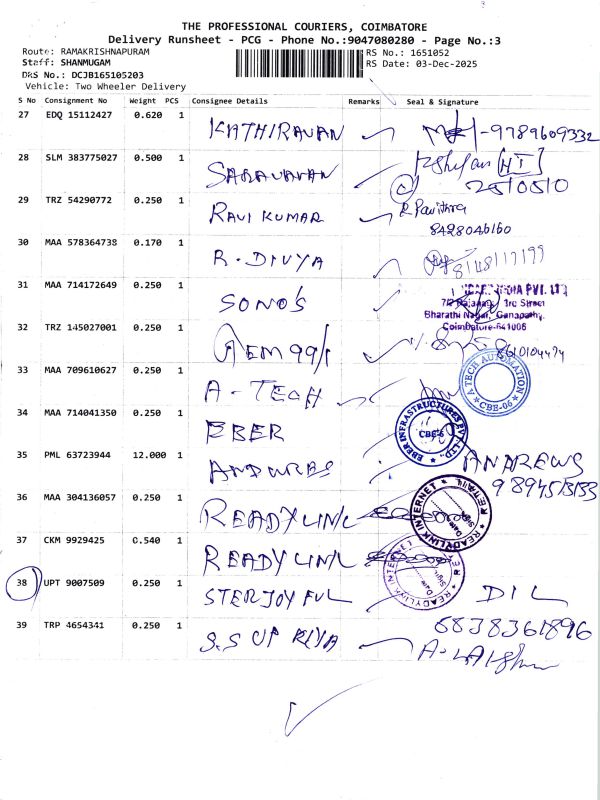 THE PROFESSIONAL COURIERS, COIMBATORE
Delivery Runsheet - PCG - Phone No.:9047080280 - Page No.:3
Route: RAMAKRISHNAPURAM
Staff: SHANMUGAM
DRS No.: DCJB165105203
Vehicle: Two Wheeler Delivery
RS No.: 1651052
RS Date: 03-Dec-2025
S No Consignment No Weight PCS Consignee Details Remarks Seal & Signature
27 EDQ 15112427 0.620 1 KATHIRAVAN -9789609332
28 SLM 383775027 0.500 1 SARAVANAN
29 TRZ 54290772 0.250 1 RAVI KUMAR R Pavithra
8428046160
30 MAA 578364738 0.170 1 R. DIVYA 8148117199
31 MAA 714172649 0.250 1 SONO'S INDIA PVT. LTD
3rd Street
Bharathi Nagar, Ganapathy,
Coimbatore-641006
32 TRZ 145027001 0.250 1 GEM 99/1 8610104474
33 MAA 709610627 0.250 1 A-TECH A TECH AUTOMATION CBE-06
34 MAA 714041350 0.250 1 EBER EBER INFRASTRUCTURES PVT. LTD., CBE-6
35 PML 63723944 12.000 1 ANDWRES ANDREWS
9894513133
36 MAA 304136057 0.250 1 READYLINK READYLINK INTERNET RETAIL Date Sign
37 CKM 9929425 0.540 1 READYLINK READYLINK INTERNET
38 UPT 9007509 0.250 1 STERJOYFUL DIL
6838361896
39 TRP 4654341 0.250 1 S.S UPRIYA